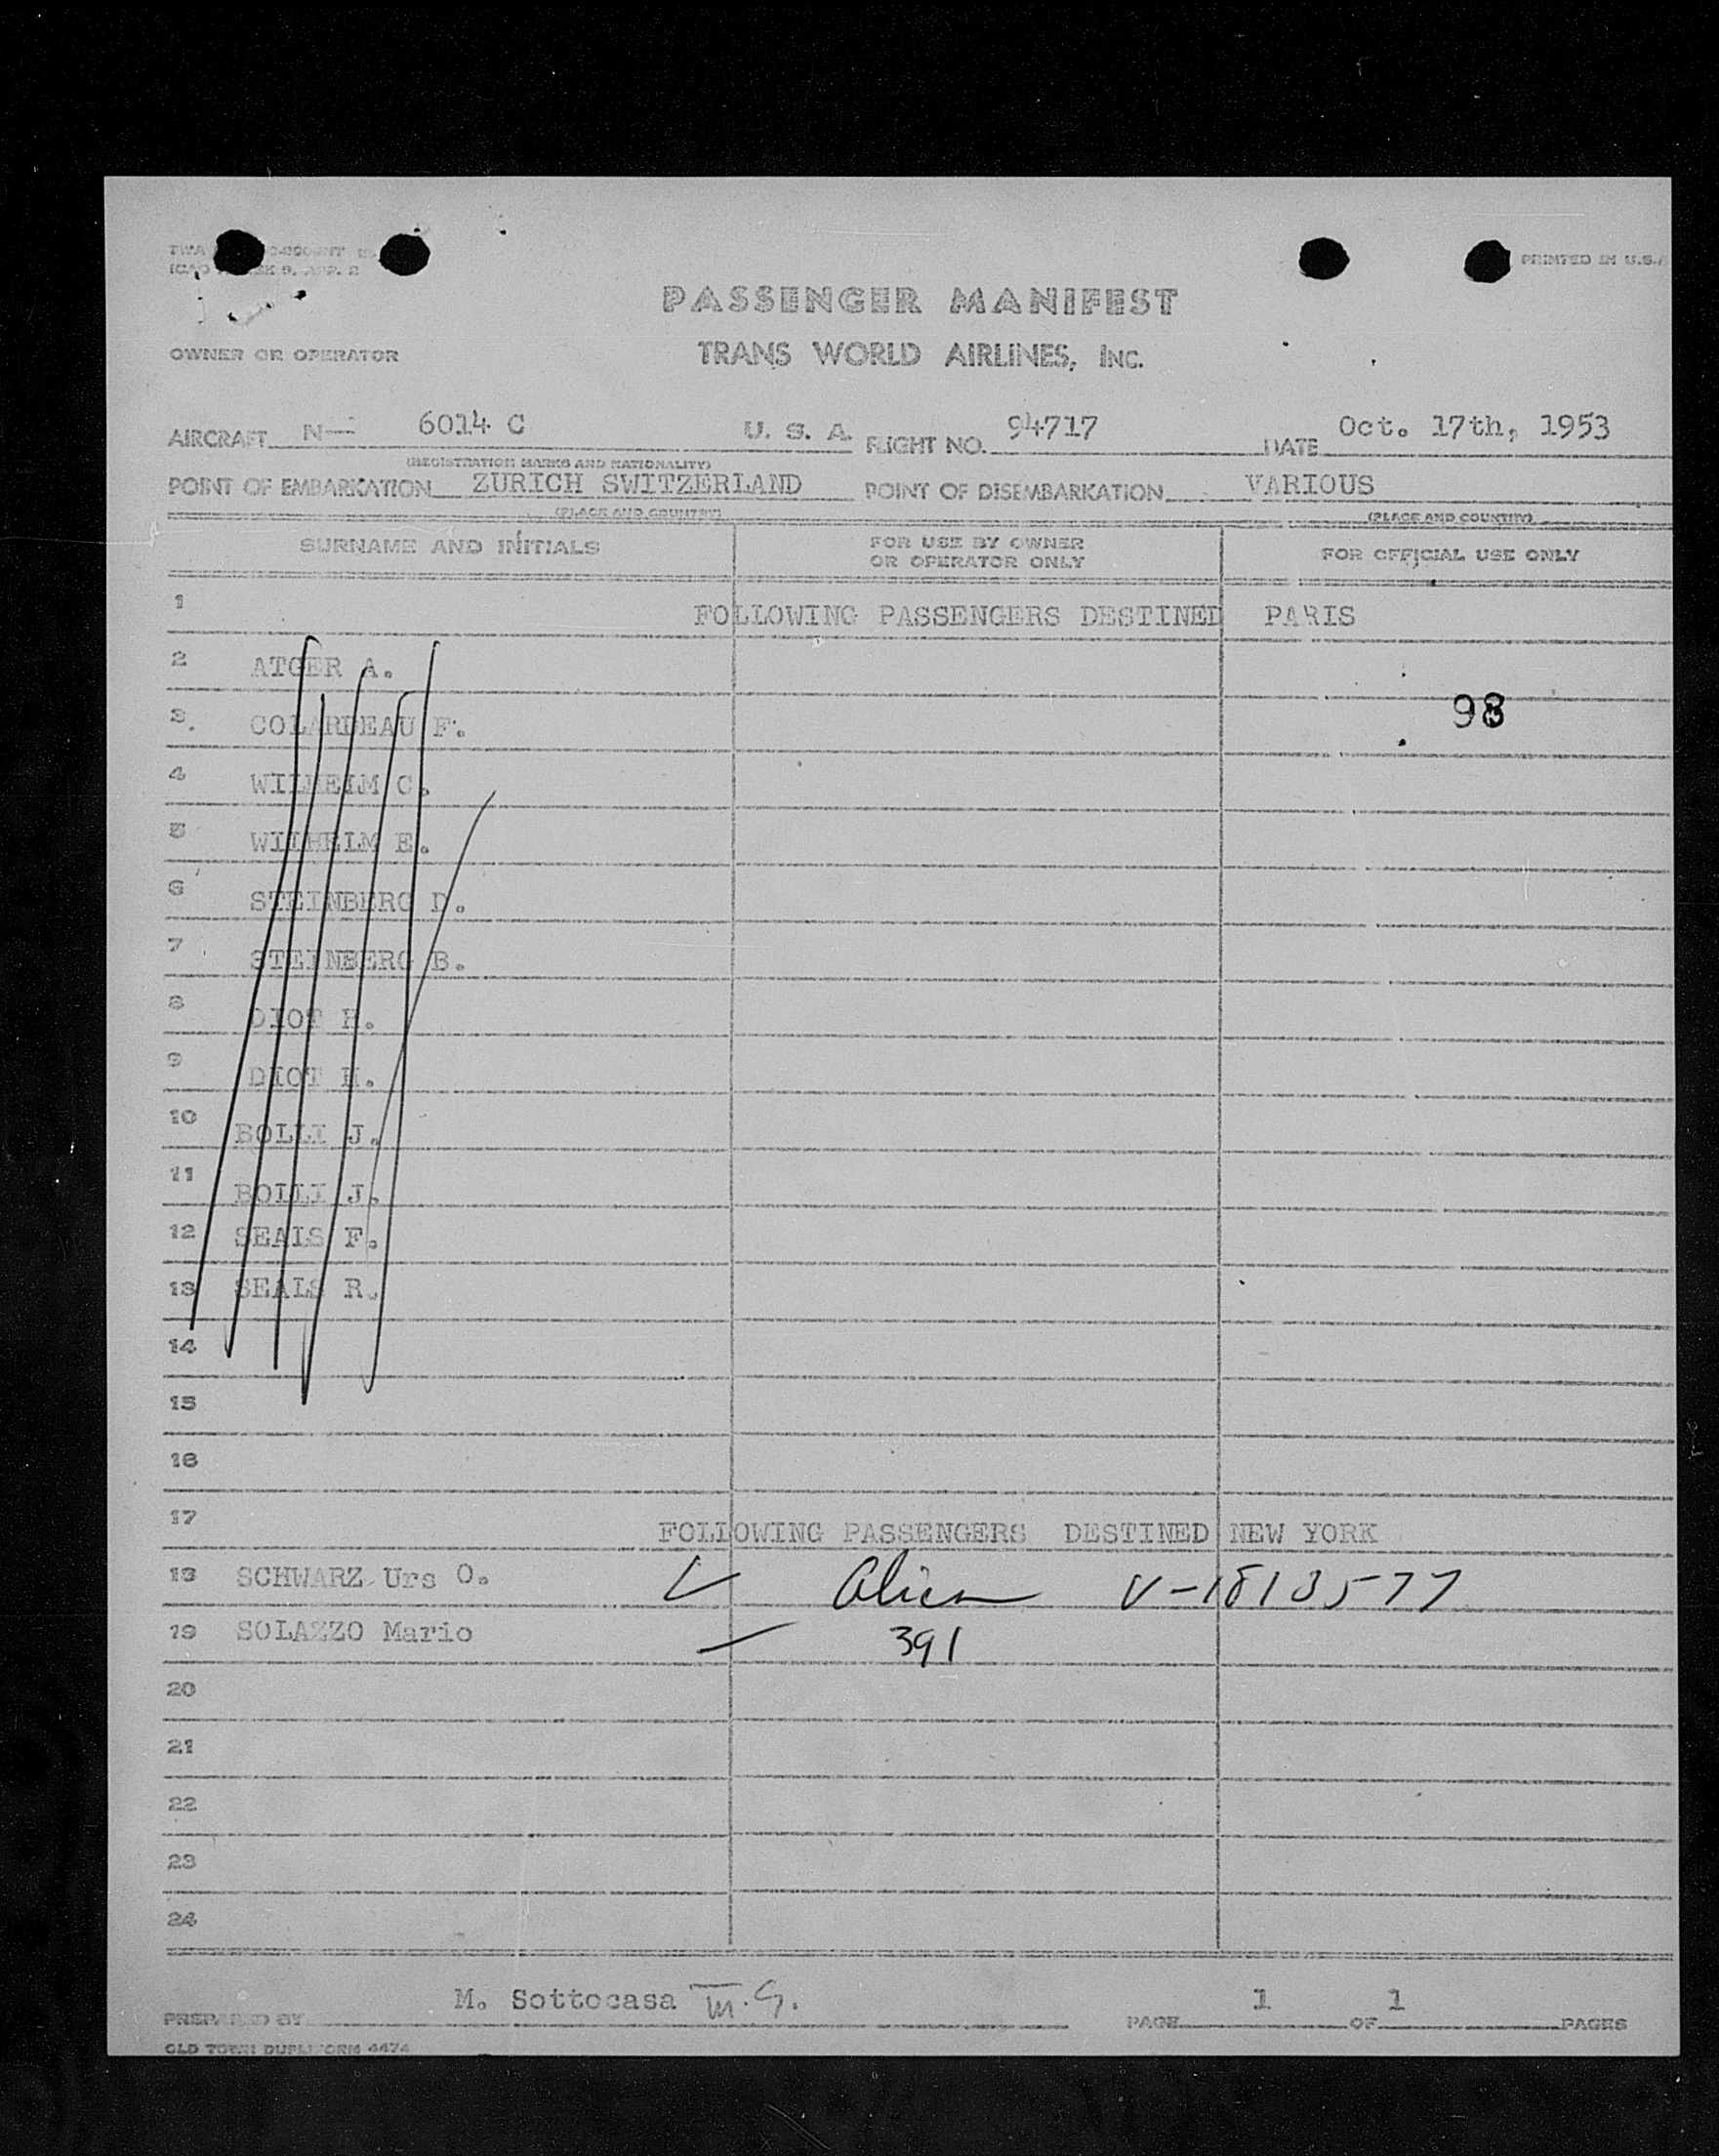 TWA
ICAO
PRINTED IN U.S.
PASSENGER MANIFEST
OWNER OR OPERATOR TRANS WORLD AIRLINES, INC.
AIRCRAFT N- 6014 C U. S. A. FLIGHT NO. 94717 DATE Oct. 17th, 1953
(REGISTRATION MARKS AND NATIONALITY)
POINT OF EMBARKATION ZURICH SWITZERLAND POINT OF DISEMBARKATION VARIOUS
(PLACE AND COUNTRY) (PLACE AND COUNTRY)
SURNAME AND INITIALS FOR USE BY OWNER OR OPERATOR ONLY FOR OFFICIAL USE ONLY
1 FOLLOWING PASSENGERS DESTINED PARIS
2 ATGER A.
98
3 COLARDEAU F.
4 WILHELM C.
5 WILHELM E.
6 STEINBERG D.
7 STEINBERG B.
8 DIOT H.
9 DIOT H.
10 BOLLI J.
11 BOLLI J.
12 SEALS F.
13 SEALS R.
14
15
16
17 FOLLOWING PASSENGERS DESTINED NEW YORK
18 SCHWARZ Urs O. Alien V-1813577
19 SOLAZZO Mario 391
20
21
22
23
24
PREPARED BY M. Sottocasa PAGE 1 OF 1 PAGES
OLD TOWN DUPLI FORM 4474